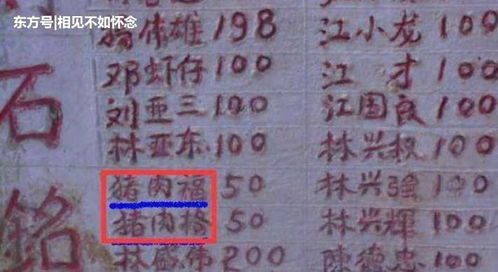 东方号|相见不如怀念
石
铭
杨伟雄 198 江小龙 100
邓虾仔 100 江才 100
刘亚三 100 江国良 100
林亚东 100 林兴权 100
猪肉福 50 林兴强 100
猪肉格 50 林兴辉 100
林 伟 200 陈德忠 100